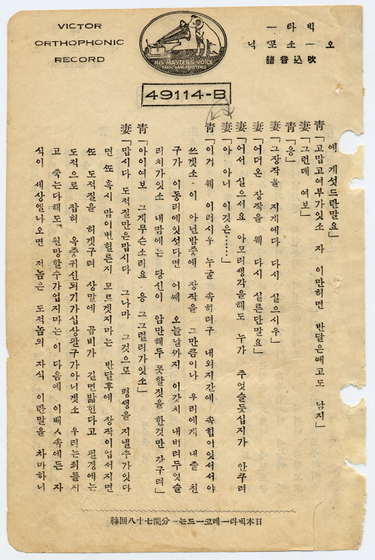 VICTOR
ORTHOPHONIC
RECORD
HIS MASTER'S VOICE
빅타ー
吹込音譜
49114-B
에 게섯드란말요」
靑「고맙고여부가잇소 자 이만하면 반달은배고도 남지」
妻「그런데 여보」
靑「응」
妻「그장작을 지게에다 다시 실으시우」
妻「어더온 장작을 웨 다시 실른단말요」
妻「어서 실으서요 아모리생각을해도 누가 주엇슬듯십지가 안쿠려
妻「아 아너 이것은……
靑「이거 웨 이러시우 누굴 속히려구 내외지간에 속힘이잇서서야
쓰겟소 이 아닌밤중에 장작을 그만큼이나 우리에게 내줄 친
구가 이동리에잇섯다면 어쩨 오늘날까지 이갓치 내버려두엇슬
리치가잇소 내맘에는 당신이 암만해두 못할짓을 한것만 갓구려」
靑「아이여보 그게무슨소리요 웅 그그럴리가잇소」
妻「맙시다 도적질만은맙시다 그나마 그것으로 평생을 지낼수가잇다
면 또 혹시 맘이변헐른지 모르겟지마는 반달후에 장작이업서지면
또 도적질을 하겟구려 상말에 곰비가 길면밟힌다고 필경에는
도적으로 잡혀 웃줏귀신되기가십상팔구가아니겟소 우리는죄를지
고 죽는다해도 원망할수가업지마는 이다음에 이배ㅅ속에든 자
식이 세상엘나오면 저놈은 도적놈의 자식 이란말을 차마하니
日本빅타ー레코ー드는ー分間七十八回轉